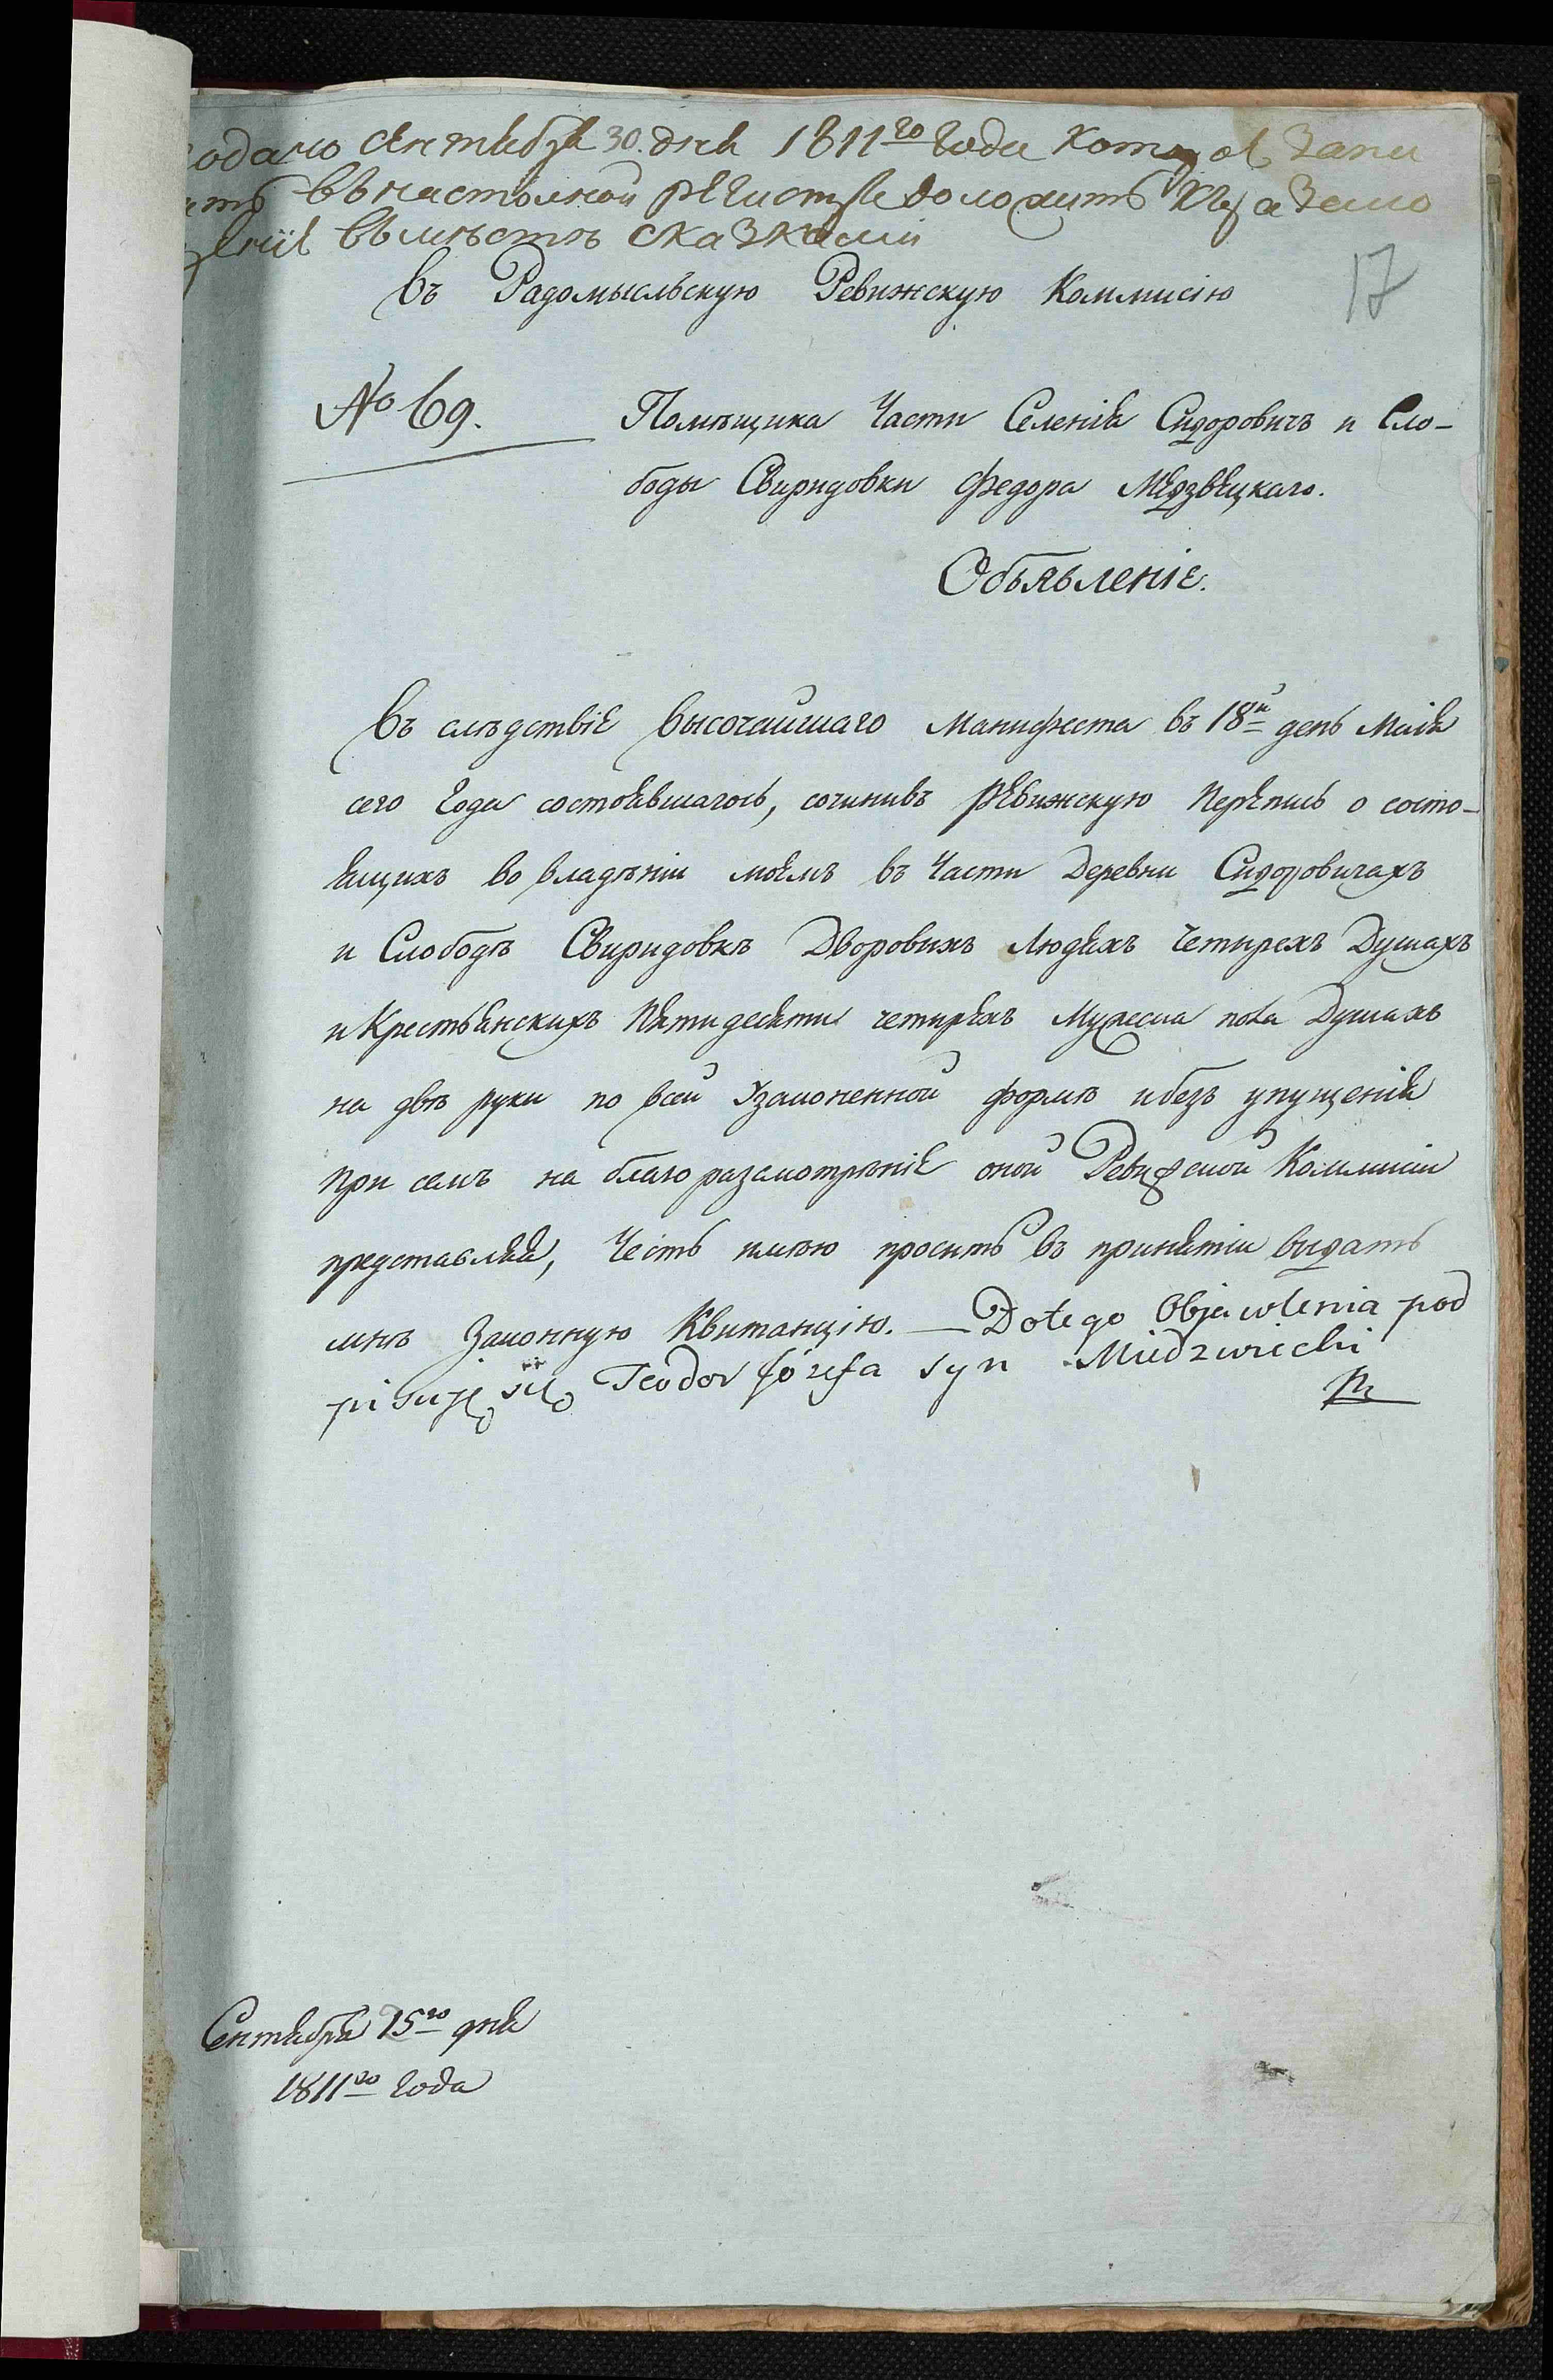 одано Сентября 30. дня 1811го Года Которое Запи
ать въ настольной регистръ доложить Къ раземо
ренiе вѣместѣ сказками
Въ Радомысльскую Ревижскую Коммисiю
17
№ 69.
Помѣщика Части Селенiя Сидоровичъ и Сло-
боды Свиридовки Федора Медзвецкаго.
Объявленiе.
Въ слѣдствiе Высочайшаго Манифеста въ 18й день Маiя
сего Года состоявшагось, сочинивъ Ревижскую Перепись о состо-
ящихъ во владѣнiи моемъ въ Части Деревни Сидоровичахъ
и Слободѣ Свиридовкѣ Дворовихъ Людяхъ Четирехъ Душахъ
и Крестьянскихъ Пятидесяти четирехъ Мужеска пола Душахъ
на двѣ руки по всей Узаконенной формѣ и безъ упущенiя
при семъ на благоразсмотрѣнiе оной Ревижской Коммисiи
представляя, Честь имѣю просить въ принятiи выдать
мнѣ Законную Квитанцiю. — Do tego Objawlenia pod
pisuję się Teodor Józefa syn Miedzwiecki
Сентября 15го дня
1811го Года